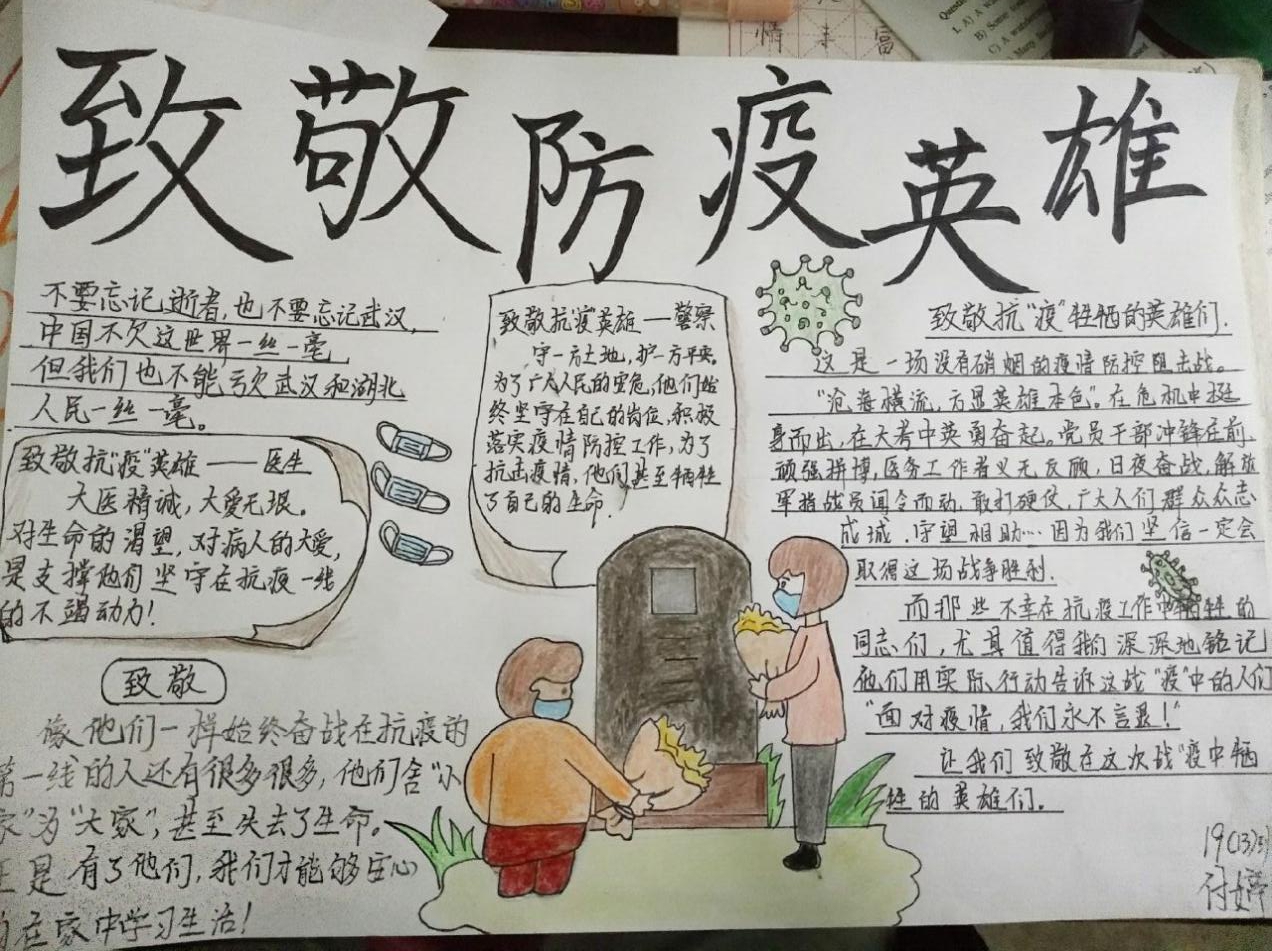 致敬防疫英雄
不要忘记逝者,也不要忘记武汉,
中国不欠这世界一丝一毫
但我们也不能亏欠武汉和湖北
人民一丝一毫。
致敬抗"疫"英雄——医生
大医精诚,大爱无垠。
对生命的渴望,对病人的大爱,
是支撑他们坚守在抗疫一线
的不竭动力!
致敬
像他们一样始终奋战在抗疫的
第一线的人还有很多很多,他们舍"小
家"为"大家",甚至失去了生命。
正是有了他们,我们才能够安心
在家中学习生活!
致敬抗疫"英雄——警察
守一方土地,护一方平安。
为了广大人民的安危,他们始
终坚守在自己的岗位,积极
落实疫情防控工作,为了
抗击疫情,他们甚至牺牲
了自己的生命!
致敬抗"疫"牺牲的英雄们.
这是一场没有硝烟的疫情防控阻击战。
"沧海横流,方显英雄本色"。在危机中挺
身而出,在大考中英勇奋起。党员干部冲锋在前,
顽强拼搏,医务工作者义无反顾,日夜奋战,解放
军指战员闻令而动,敢打硬仗,广大人们群众众志
成城,守望相助…因为我们坚信一定会
取得这场战争胜利.
而那些不幸在抗疫工作中牺牲的
同志们,尤其值得我们深深地铭记
他们用实际行动告诉这战"疫"中的人们
"面对疫情,我们永不言退!"
让我们致敬在这次战"疫中牺
牲的英雄们。
19(13)
付婷
情 丰 富